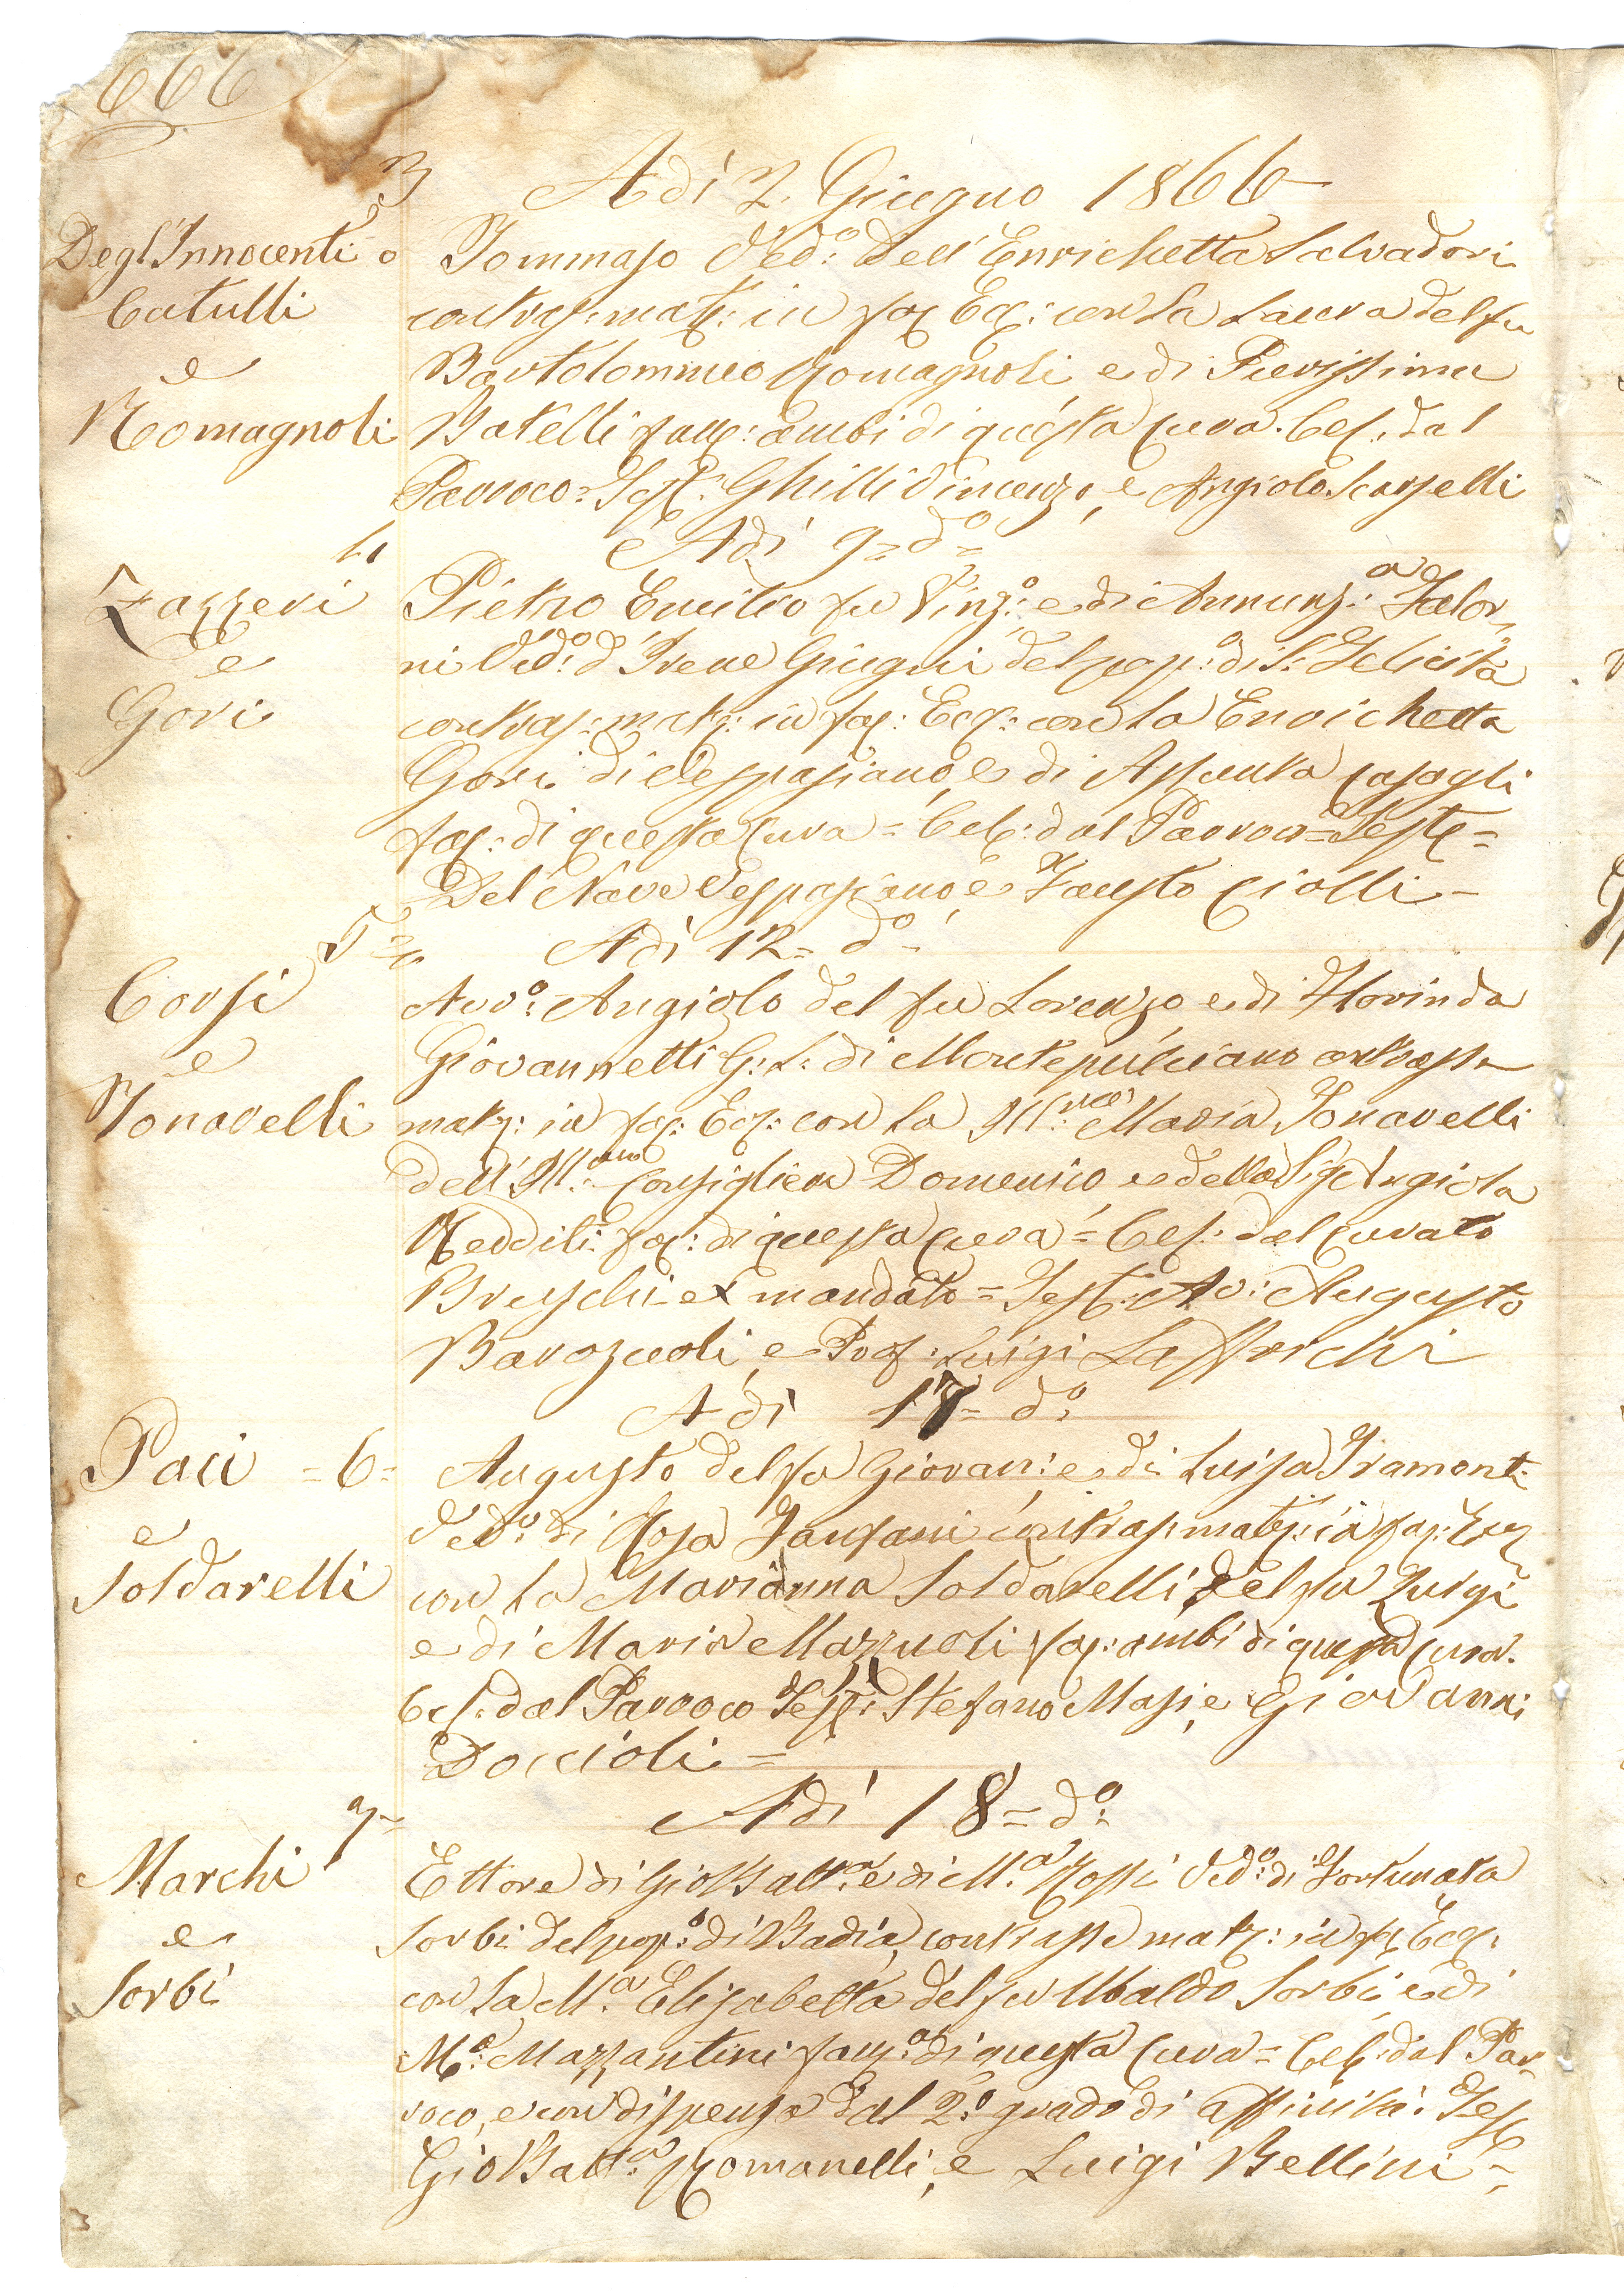 666
3 Adì 2. Giugno 1866
Degl'Innocenti o Tommaso Ved:º dell' Enrichetta Salvadori
Catulli contras: mat: in fac: Ecc: con la Laura del fu
e Bartolommeo Romagnoli e di Pierissima
Romagnoli Batelli ambi di questa Cura. Cel: dal
Parroco = Test: Ghilli Vincenzo, e Angiolo Scarselli
4 Adì 9 = dº =
Zazzeri Pietro Emilio fu Vinz:º e di Annunz:ª Falor
e ni Ved:º d' Irene Giugni del pop:º di S: Felicita
Gori contras: matr: in fac: Ecc: con la Enrichetta
Gori di Vespasiano, e di Assunta Casagli
di questa Cura = Cel: dal Parroco = Test: =
Del Nave Vespasiano e Fausto Ciolli =
5 Adì 12 = dº
Corsi Avv:º Angiolo del fu Lorenzo e di Florinda
e Giovannetti G: L: di Montepulciano contrasse
Tonarelli matr: in fac: Ecc: con la Maria Tonarelli
dell' Ill:mo Consigliere Domenico e della Sig: Angiola
Redditi di questa Cura = Cel: dal Curato
Breschi ex mandato = Test: Av: Augusto
Barazuoli, e Prof: Luigi
Adì 17 = dº
Paci = 6 = Augusto del fu Giovan: e di Luisa Tramonti
e Ved:º di Rosa Fanfani contras: matr: in fac: Ecc
Soldarelli con la Marianna Soldarelli del fu Luigi
e di Maria Mazzuoli ambi di questa Cura.
Cel: dal Parroco Test: Stefano Masi, e Giovanni
Doccioli =
7 = Adì 18 = dº
Marchi Ettore di Gio Batt:ª e di M:ª Rossi Ved:º di Fortunata
e Sorbi del pop:º di Badia, contrasse matr: in fac: Ecc:
Sorbi con la M:ª Elisabetta del fu Ubaldo Sorbi, e di
M:ª Mazzantini di questa Cura = Cel: dal Par
roco, e con dispensa dal 2:º grado di affinità: Test
Gio Batt:ª Romanelli, e Luigi Bellini =